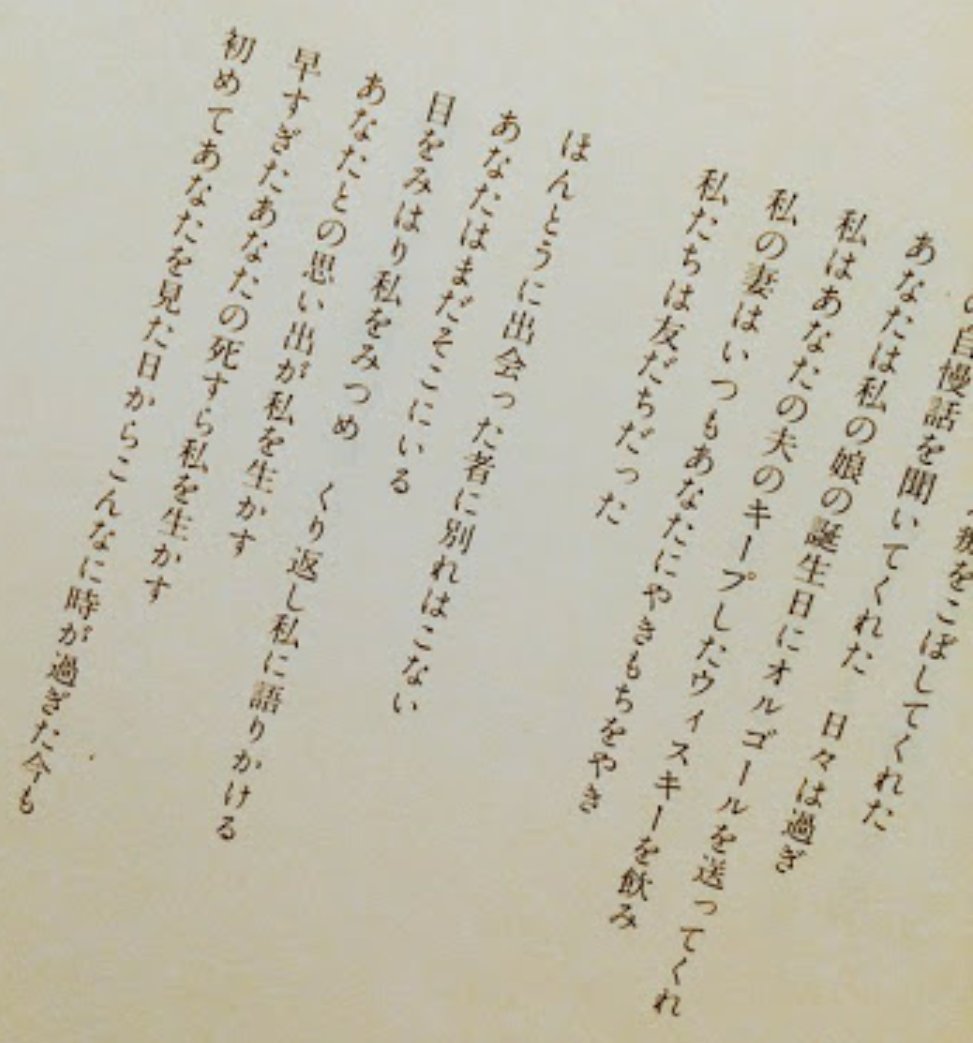 をこぼしてくれた
の自慢話を聞いてくれた　日々は過ぎ
あなたは私の娘の誕生日にオルゴールを送ってくれ
私はあなたの夫のキープしたウィスキーを飲み
私の妻はいつもあなたにやきもちをやき
私たちは友だちだった
ほんとうに出会った者に別れはこない
あなたはまだそこにいる
目をみはり私をみつめ　くり返し私に語りかける
あなたとの思い出が私を生かす
早すぎたあなたの死すら私を生かす
初めてあなたを見た日からこんなに時が過ぎた今も